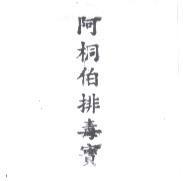 阿桐伯排毒寶